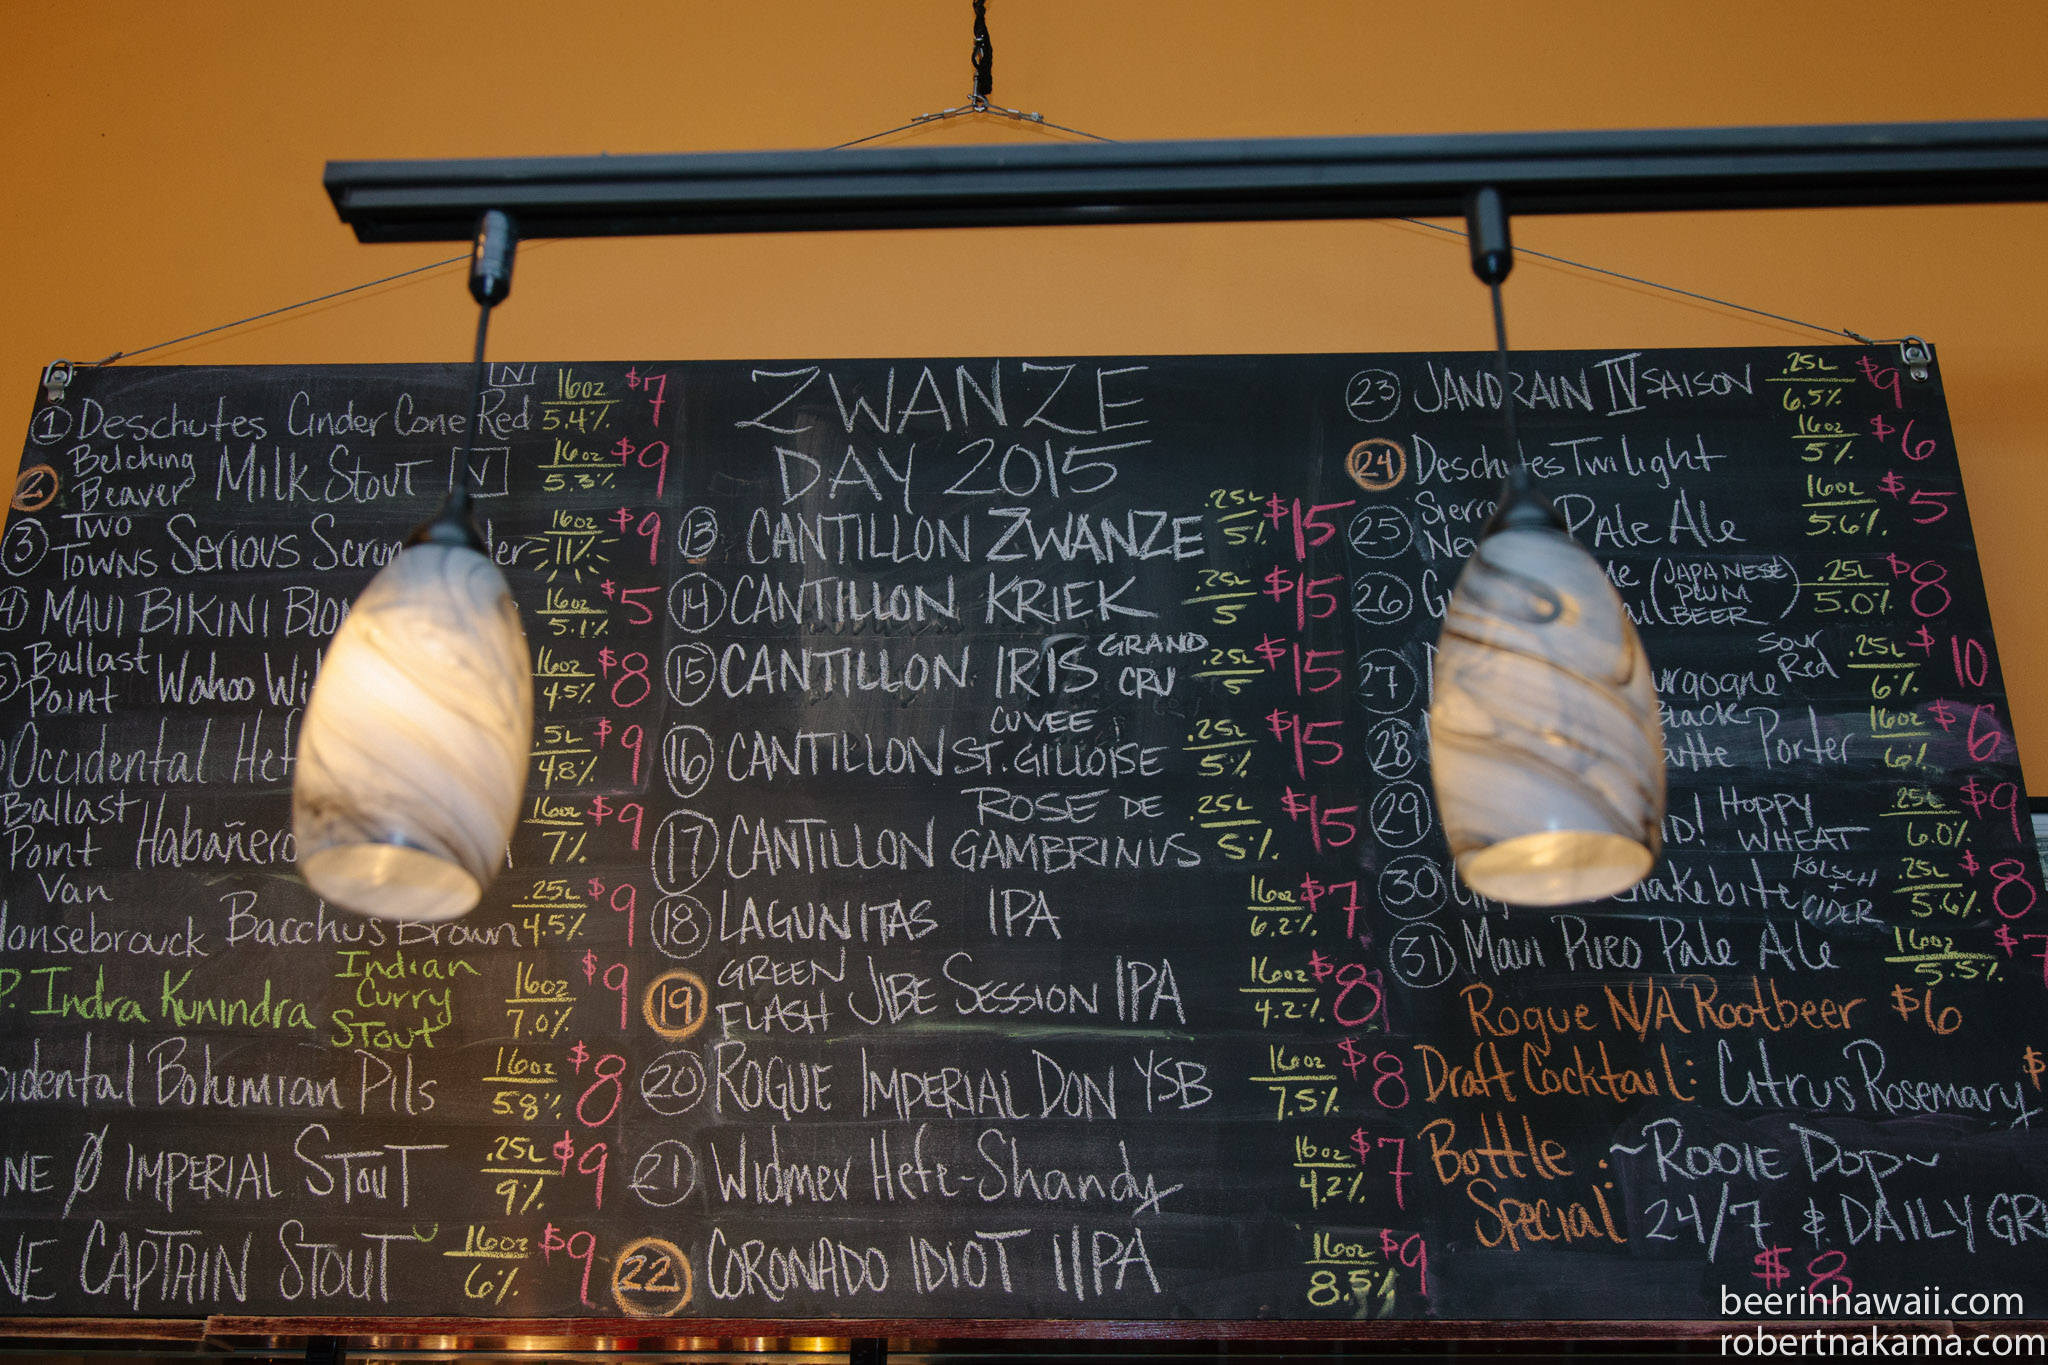 1 Deschutes Cinder Cone Red N 16oz 5.4% $7
2 Belching Beaver Milk Stout N 16oz 5.3% $9
3 Two Towns Serious 16oz 11% $9
MAUI BIKINI 16oz 5.1% $5
Ballast Point Wahoo 16oz 4.5% $8
Occidental .5L 4.8% $9
Ballast Point Habañero 16oz 7% $9
Van Bacchus Brown .25L 4.5% $9
Indra Kunindra Indian Curry Stout 16oz 7.0% $9
Bohemian Pils 16oz 5.8% $8
Ø IMPERIAL STOUT .25L 9% $9
CAPTAIN STOUT 16oz 6% $9
ZWANZE
DAY 2015
13 CANTILLON ZWANZE .25L 5% $15
14 CANTILLON KRIEK .25L 5 $15
15 CANTILLON IRIS GRAND CRU .25L 5 $15
16 CANTILLON CUVEE ST. GILLOISE .25L 5% $15
17 CANTILLON ROSE DE GAMBRINUS .25L 5% $15
18 LAGUNITAS IPA 16oz 6.2% $7
19 GREEN FLASH JIBE SESSION IPA 16oz 4.2% $8
20 ROGUE IMPERIAL DON YSB 16oz 7.5% $8
21 Widmer Hefe-Shandy 16oz 4.2% $7
22 CORONADO IDIOT IIPA 16oz 8.5% $9
23 JANDRAIN IV SAISON .25L 6.5% $9
24 Deschutes Twilight 16oz 5% $6
25 Pale Ale 16oz 5.6% $5
26 (JAPANESE PLUM BEER) .25L 5.0% $8
27 Sour Red .25L 6% $10
28 Black Porter 16oz 6% $6
29 Hoppy WHEAT .25L 6.0% $9
30 KOLSCH + CIDER .25L 5.6% $8
31 Maui Pueo Pale Ale 16oz 5.5% $7
Rogue N/A Rootbeer $6
Draft Cocktail: Citrus Rosemary $
Bottle Special: ~ROOIE DOP~
24/7 & DAILY
$8
beerinhawaii.com
robertnakama.com